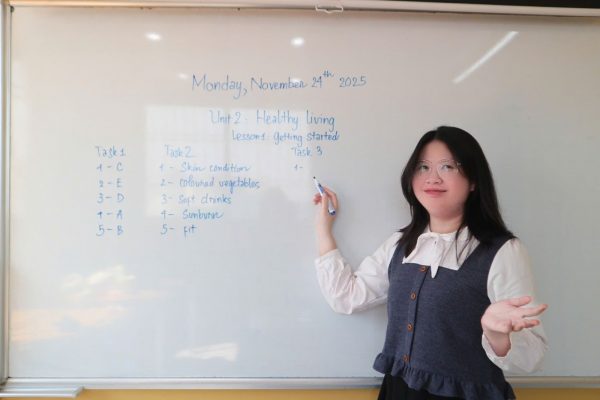 Monday, November 24th 2025
Unit 2: Healthy Living
Lesson 1: getting started
Task 1
1 - C
2 - E
3 - D
4 - A
5 - B
Task 2
1 - Skin condition
2 - Coloured vegetables
3 - Soft drinks
4 - Sunburn
5 - fit
Task 3
1 -